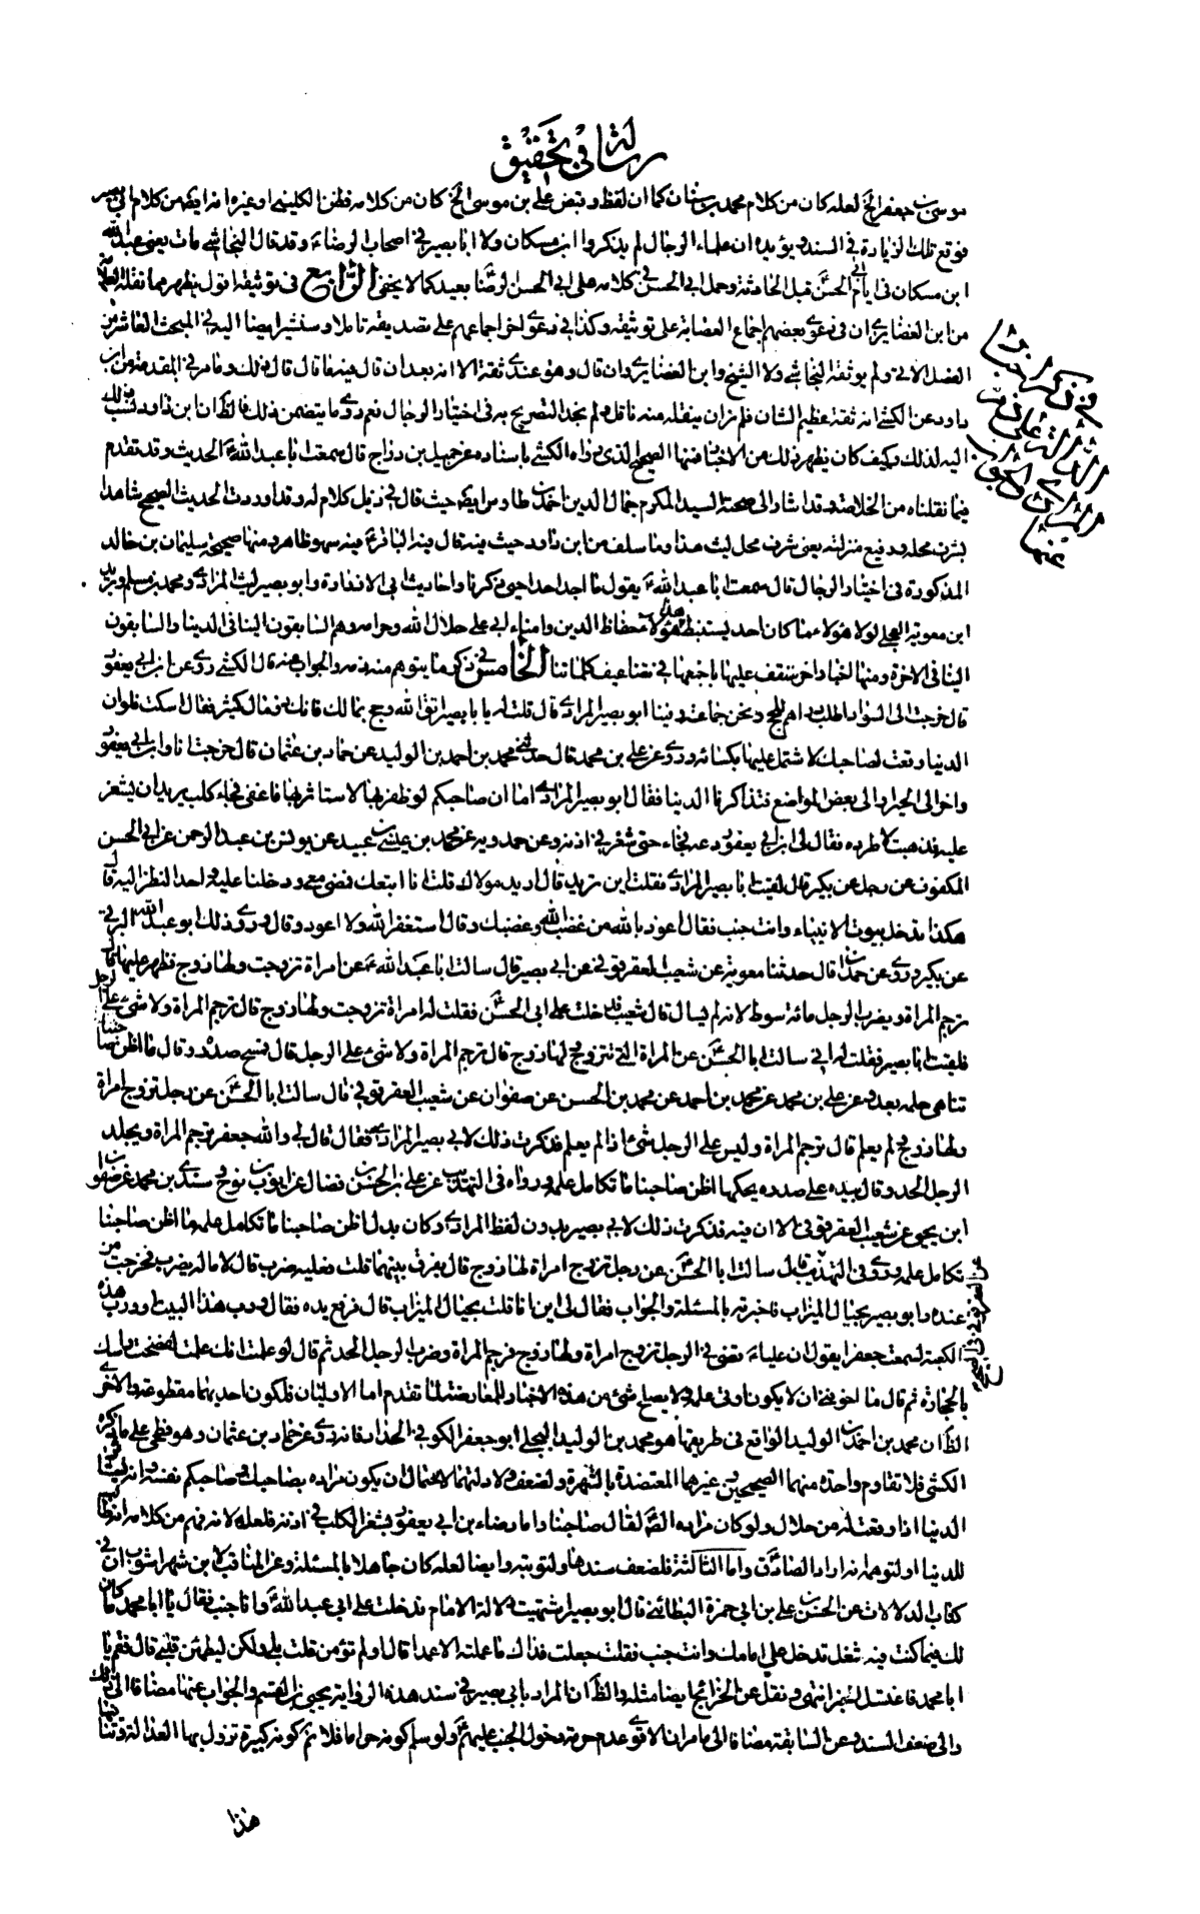 رسالة في تحقيق
موسى بن جعفر الخ لعله كان من كلام محمد بن سنان كما ان لفظ وقبض علي بن موسى الخ كان من كلامه فظن الكليني او غيره انه ايضا من كلام ابي بصير
فوقع تلك الزيادة في السند ويؤيده ان علماء الرجال لم يذكروا ابن مسكان ولا ابا بصير في اصحاب الرضاء وقد قال النجاشي مات يعني عبد الله
ابن مسكان في ايام ابي الحسن قبل الحادثة وحمل ابي الحسن في كلامه على ابي الحسن الرضا بعيد كما لا يخفى الرابع في توثيقه اقول يظهر مما نقله العلامة
من ابن الغضايري ان في دعوى بعضهم اجماع العصابة على توثيقه وكذا في دعوى اخر اجماعهم على تصديقه تاملا وسنشير ايضا اليه في المبحث العاشر من
الفصل الاتي ولم يوثقه النجاشي ولا الشيخ وابن الغضايري وان قال وهو عندي ثقة الا انه بعد ان قال فيه ما قال قال ذلك وما مر في المقدمة من ابن
داود عن الكشي انه ثقة عظيم الشان فلم نر ان ينقله منه ناقل ولم نجد التصريح به في اختيار الرجال نعم روى ما يتضمن ذلك فالظ ان ابن داود نسب ذلك
اليه لذلك وكيف كان يظهر ذلك من الاخبار فمنها الصحيح الذي رواه الكشي باسناده عن جميل بن دراج قال سمعت ابا عبد الله الحديث وقد تقدم
فيما نقلناه من الخلاصة وقد اشار الى صحته السيد المكرم جمال الدين احمد بن طاوس ايضا حيث قال في ذيل كلام له وقد اوردت الحديث الصحيح شاهدا
بشرف محله ورفيع منزلته يعني شرف محل ليث هذا وما سلف من ابن داود حيث فيه قال فيه الباقر فيه سهو ظاهر ومنها صحيحة سليمان بن خالد
المذكورة في اختيار الرجال قال سمعت ابا عبد الله يقول ما اجد احدا احيى ذكرنا واحاديث ابي الا زرارة وابو بصير ليث المرادي ومحمد بن مسلم وبريد
ابن معوية العجلي لولا هؤلاء ما كان احد يستنبط هذا هؤلاء حفاظ الدين وامناء ابي على حلال الله وحرامه وهم السابقون الينا في الدنيا والسابقون
الينا في الاخرة ومنها اخبار اخر ستقف عليها باجمعها في تضاعيف كلماتنا الخامس في ذكر ما يتوهم منه ذمه والجواب عنه قال الكشي روى عن ابن ابي يعفور
قال خرجت الى السواد اطلب دراهم للحج ونحن جماعة وفينا ابو بصير المرادي قال قلت له يا ابا بصير اتق الله وحج بمالك فانك ذو مال كثير فقال اسكت فلو ان
الدنيا وقعت لصاحبك لاشتمل عليها بكسائه وروى عن علي بن محمد قال حدثني محمد بن احمد بن الوليد عن حماد بن عثمان قال خرجت انا وابن ابي يعفور
واخر الى الحيرة والى بعض المواضع فتذاكرنا الدنيا فقال ابو بصير المرادي اما ان صاحبكم لو ظفر بها لاستاثر بها فاغفى فجاء كلب يريد ان يشغر
عليه فذهبت لاطرده فقال لي ابن ابي يعفور دعه فجاء حتى شغر في اذنه وعن حمدويه عن محمد بن عيسى بن عبيد عن يونس بن عبد الرحمن عن ابي الحسن
المكفوف عن رجل عن بكير قال لقيت ابا بصير المرادي فقلت اين تريد قال اريد مولاك قلت انا اتبعك فمضى معي ودخلنا عليه واحد النظر اليه قال
هكذا تدخل بيوت الانبياء وانت جنب فقال اعوذ بالله من غضب الله وغضبك وقال استغفر الله ولا اعود وقال وروى ذلك ابو عبد الله البرقي
عن بكير وروى عن حمدان قال حدثنا معوية عن شعيب العقرقوفي عن ابي بصير قال سالت ابا عبد الله عن امراة تزوجت ولها زوج فظهر عليها قال
ترجم المراة ويضرب الرجل مائة سوط لانه لم يسال قال شعيب فدخلت على ابي الحسن فقلت له امراة تزوجت ولها زوج قال ترجم المراة ولا شيء على الرجل
فلقيت ابا بصير فقلت له اني سالت ابا الحسن عن المراة التي تتزوج ولها زوج قال ترجم المراة ولا شيء على الرجل قال فمسح صدره وقال ما اظن صاحبنا
تناهى حلمه بعد وعن علي بن محمد عن محمد بن احمد عن محمد بن الحسن عن صفوان عن شعيب العقرقوفي قال سالت ابا الحسن عن رجل تزوج امراة
ولها زوج لم يعلم قال ترجم المراة وليس على الرجل شيء اذا لم يعلم فذكرت ذلك لابي بصير المرادي فقال قال لي والله جعفر ترجم المراة ويجلد
الرجل الحد وقال بيده على صدره يحكها اظن صاحبنا ما تكامل علمه ورواه في التهذيب عن علي بن الحسن بن فضال عن ايوب بن نوح وسندي بن محمد عن صفوان
ابن يحيى عن شعيب العقرقوفي الا ان فيه فذكرت ذلك لابي بصير بدون لفظ المرادي وكان بدل اظن صاحبنا ما تكامل علمه ما اظن صاحبنا
تكامل علمه وروى في التهذيب قال سالت ابا الحسن عن رجل تزوج امراة لها زوج قال يفرق بينهما قلت فعليه ضرب قال لا ماله يضرب فخرجت من
عنده وابو بصير بحيال الميزاب فاخبرته بالمسئلة والجواب فقال لي اين انا قلت بحيال الميزاب قال فرفع يده فقال ورب هذا البيت او ورب هذه
الكعبة لسمعت جعفرا يقول ان عليا قضى في الرجل تزوج امراة ولها زوج فرجم المراة وضرب الرجل الحد ثم قال لو علمت انك علمت لفضخت راسك
بالحجارة ثم قال ما اخوفني ان لا يكون اوتي علمه ولا يصلح شيء من هذه الاخبار للمعارضة لما تقدم اما الاوليان فلكون احديهما مقطوعة والاخر
الظ ان محمد بن احمد بن الوليد الواقع في طريقها هو محمد بن الوليد البجلي ابو جعفر الكوفي الخزاز فانه روى عن حماد بن عثمان وهو فطحي على ما ذكره
الكشي فلا تقاوم واحدة منهما الصحيحين وغيرهما المعتضدة بالشهرة ولضعف دلالتهما لاحتمال ان يكون مراده بصاحبك وصاحبكم نفسه وانه ليث
الدنيا اذا وقعت له من حلال ولو كان مراده الص لقال صاحبنا واما رضاء ابن ابي يعفور بشغر الكلب في اذنه فلعله لانه فهم من كلامه انه طالب
للدنيا او لتوهمه انه اراد الصادق واما الثالثة فلضعف سندها ولتوبته وايضا لعله كان جاهلا بالمسئلة وعن المناقب لابن شهراشوب ان في
كتاب الدلالات عن الحسن بن علي بن ابي حمزة البطائني قال ابو بصير اشتهيت دلالة الامام فدخلت على ابي عبد الله وانا جنب فقال يا ابا محمد ما كان
لك فيما كنت فيه شغل تدخل على امامك وانت جنب فقلت جعلت فداك ما عملته الا عمدا قال اولم تؤمن قلت بلى ولكن ليطمئن قلبي قال فقم يا
ابا محمد فاغتسل الخبر انتهى ونقل عن الخرائج ايضا مثله والظ ان المراد بابي بصير في سند هذه الرواية يحيى بن القسم والجواب عنها مضافا الى ذلك
والى ضعف السند وعن السابقة مضافا الى ما مر ان الاقوى عدم حرمة دخول الجنب عليهم ولو سلم كونه حراما فلا نم كونه كبيرة تزول بها العدالة وتنافيها
هذا
في ذكر اخبار
الدالة على ذم
المرادي والجواب
عنها
عن العقرقوفي في الصحيح